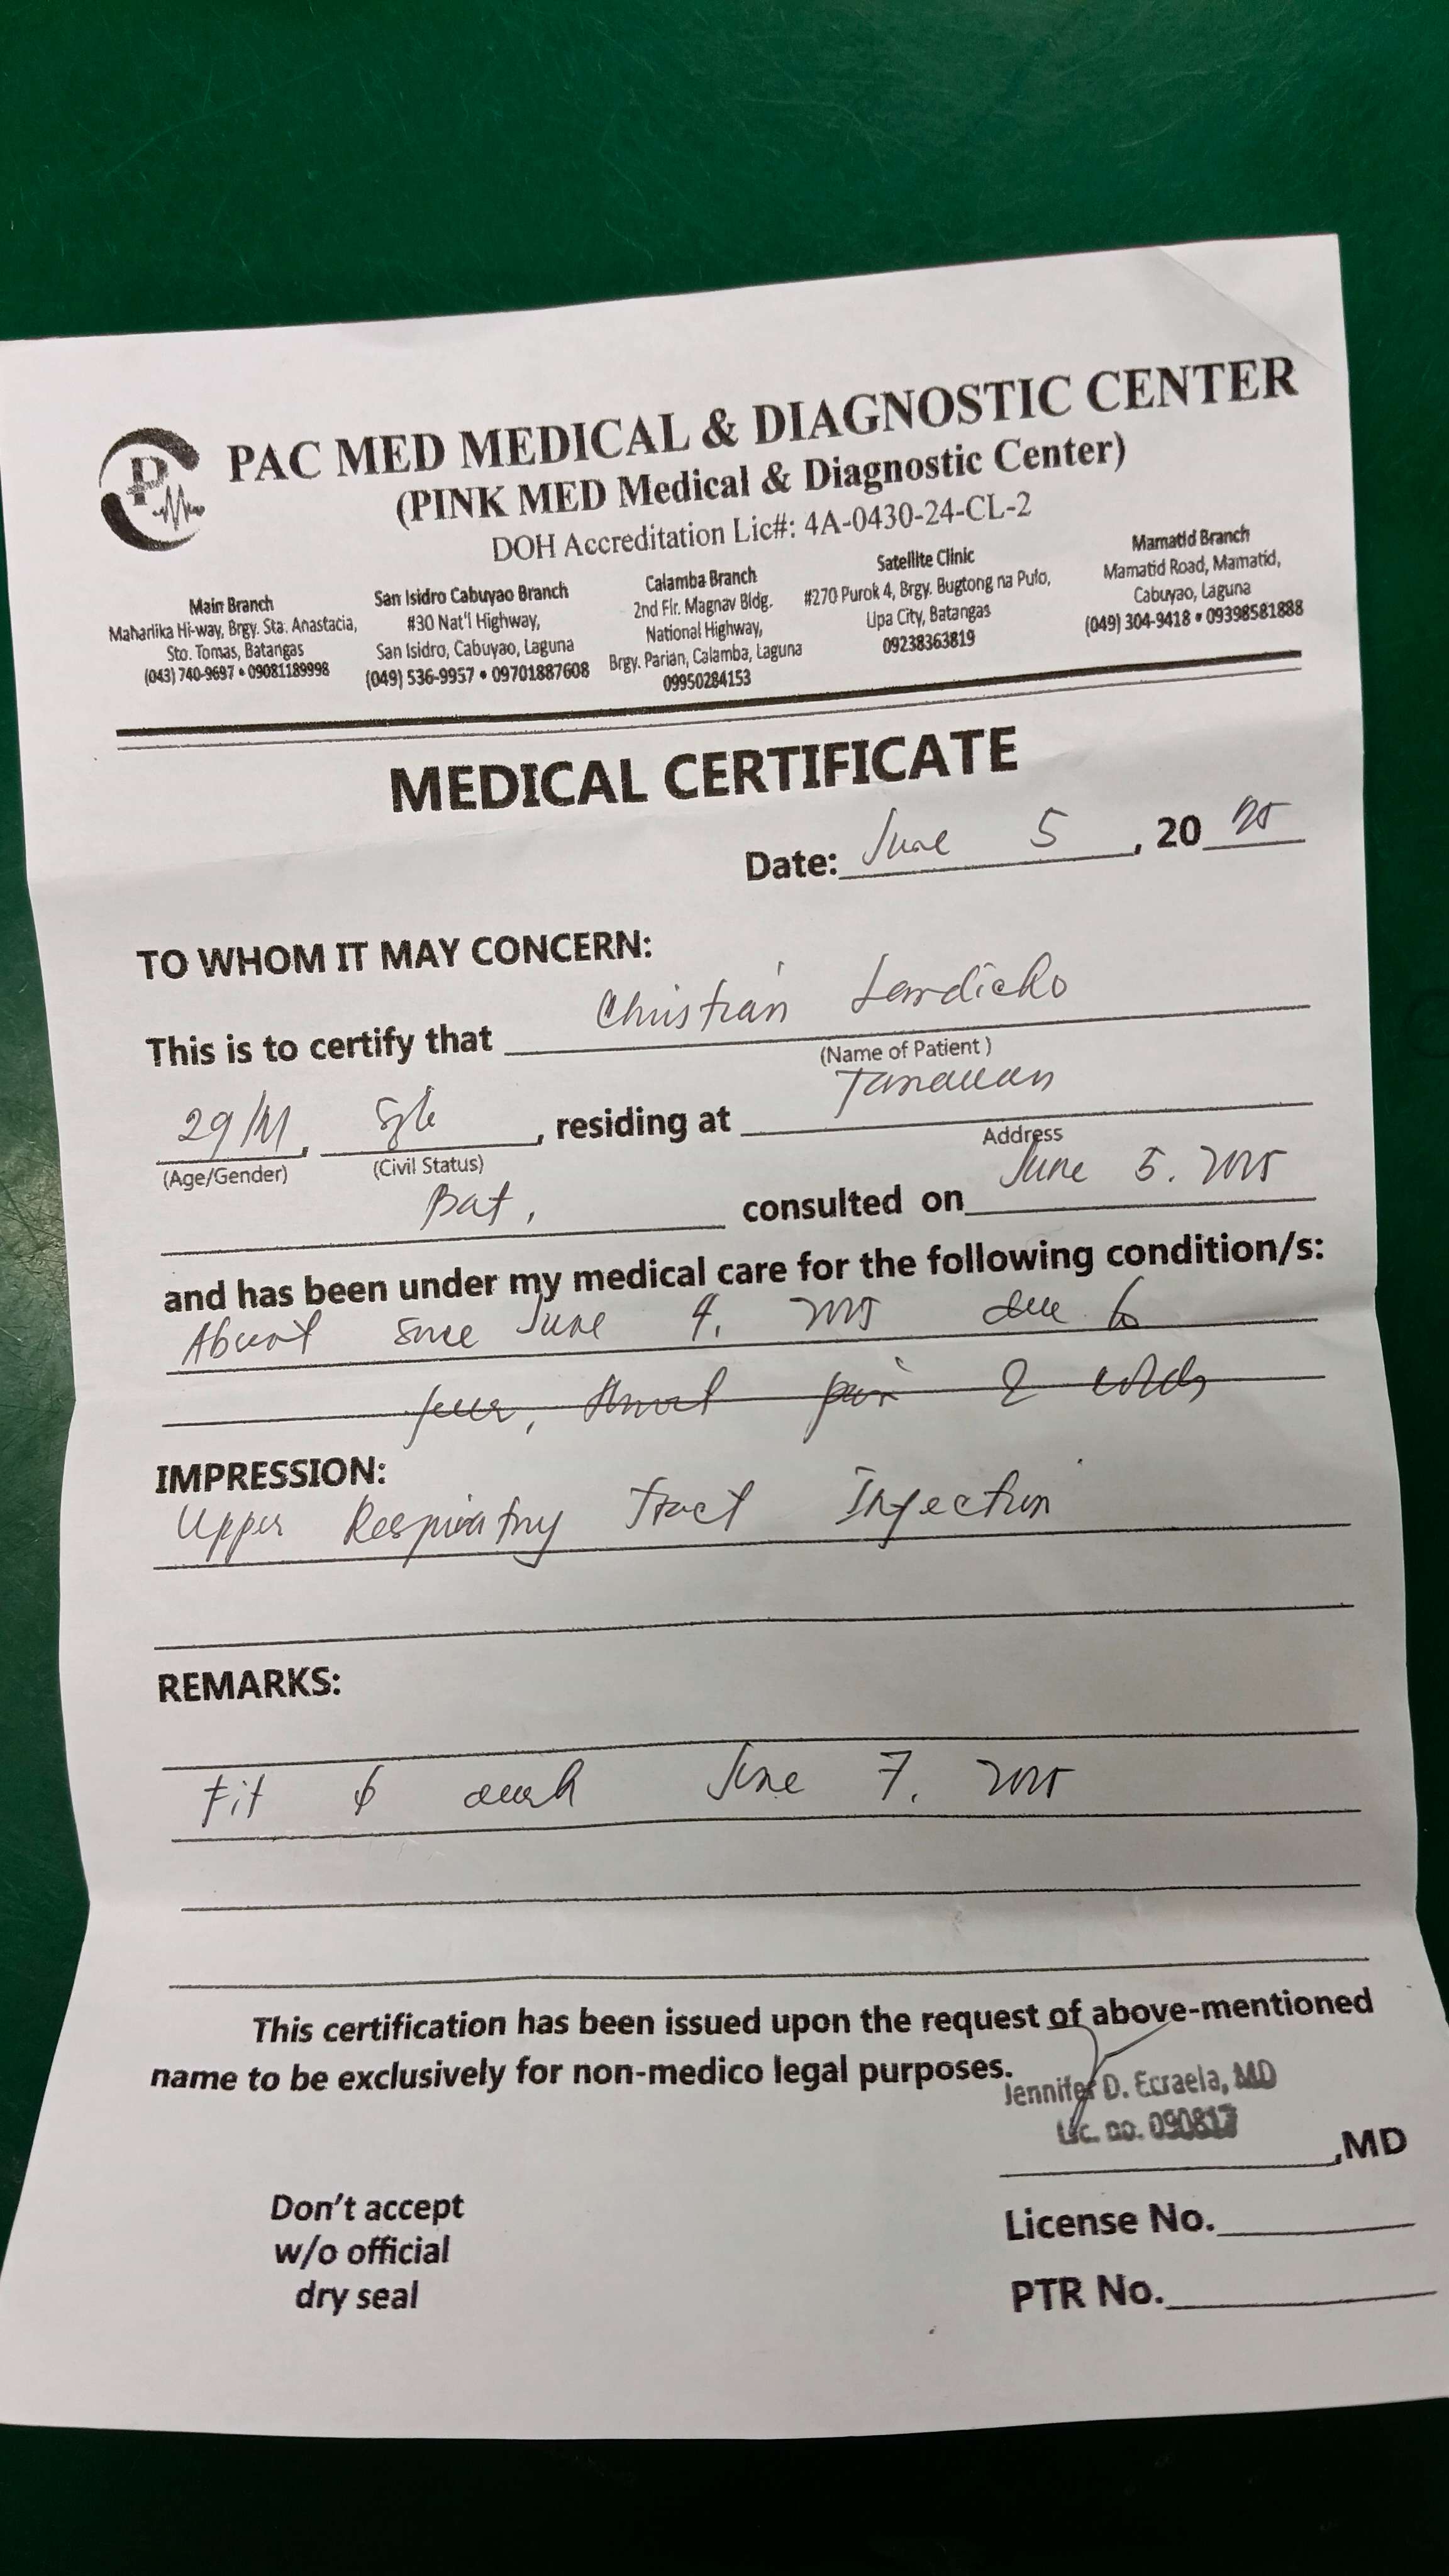 PAC MED MEDICAL & DIAGNOSTIC CENTER
(PINK MED Medical & Diagnostic Center)
DOH Accreditation Lic#: 4A-0430-24-CL-2
Main Branch
Maharlika Hi-way, Brgy. Sta. Anastacia,
Sto. Tomas, Batangas
(043) 740-9697 • 09081189998
San Isidro Cabuyao Branch
#30 Nat'l Highway,
San Isidro, Cabuyao, Laguna
(049) 536-9957 • 09701887608
Calamba Branch
2nd Flr. Magnav Bldg.
National Highway,
Brgy. Parian, Calamba, Laguna
09950284153
Satellite Clinic
#270 Purok 4, Brgy. Bugtong na Pulo,
Lipa City, Batangas
09238363819
Mamatid Branch
Mamatid Road, Mamatid,
Cabuyao, Laguna
(049) 304-9418 • 09398581888
MEDICAL CERTIFICATE
Date: June 5, 2025
TO WHOM IT MAY CONCERN:
This is to certify that Christian
(Name of Patient)
29/M, sgle, residing at Tanauan
(Age/Gender) (Civil Status) Address
Bat, consulted on June 5, 2025
and has been under my medical care for the following condition/s:
Absent since June 4, 2025 due to
fever, throat pain & colds
IMPRESSION:
Upper Respiratory Tract Infection
REMARKS:
Fit to work June 7, 2025
This certification has been issued upon the request of above-mentioned
name to be exclusively for non-medico legal purposes.
Jennifer D. Ecraela, MD
Lic. no. 090817
,MD
Don't accept
w/o official
dry seal
License No.
PTR No.